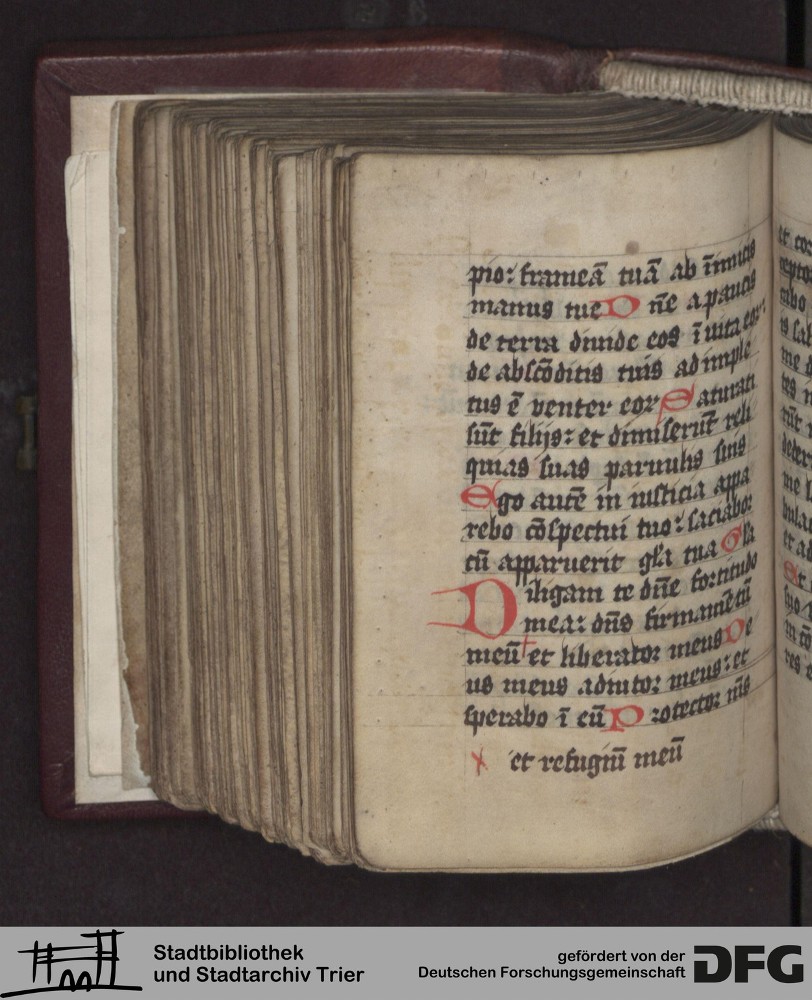 pio: frameā tuā ab īimicis
manus tue D n̄e a paucis
de terra diuide eos ī uita eor:
de abscōditis tuis adimple
tus ē venter eor Saturati
sūt filijs: et dimiserūt reli
quias suas paruulis suis
Ego autē in iusticia appa
rebo cōspectui tuo: saciabor
cū apparuerit gl'a tua Gl'a
Diligam te dn̄e fortitudo
mea: dn̄s firmamētū
meū et liberator meus De
us meus adiutor meus: et
sperabo ī eū Protector m̄s
x et refugiū meū
Stadtbibliothek
und Stadtarchiv Trier
gefördert von der
Deutschen Forschungsgemeinschaft
DFG